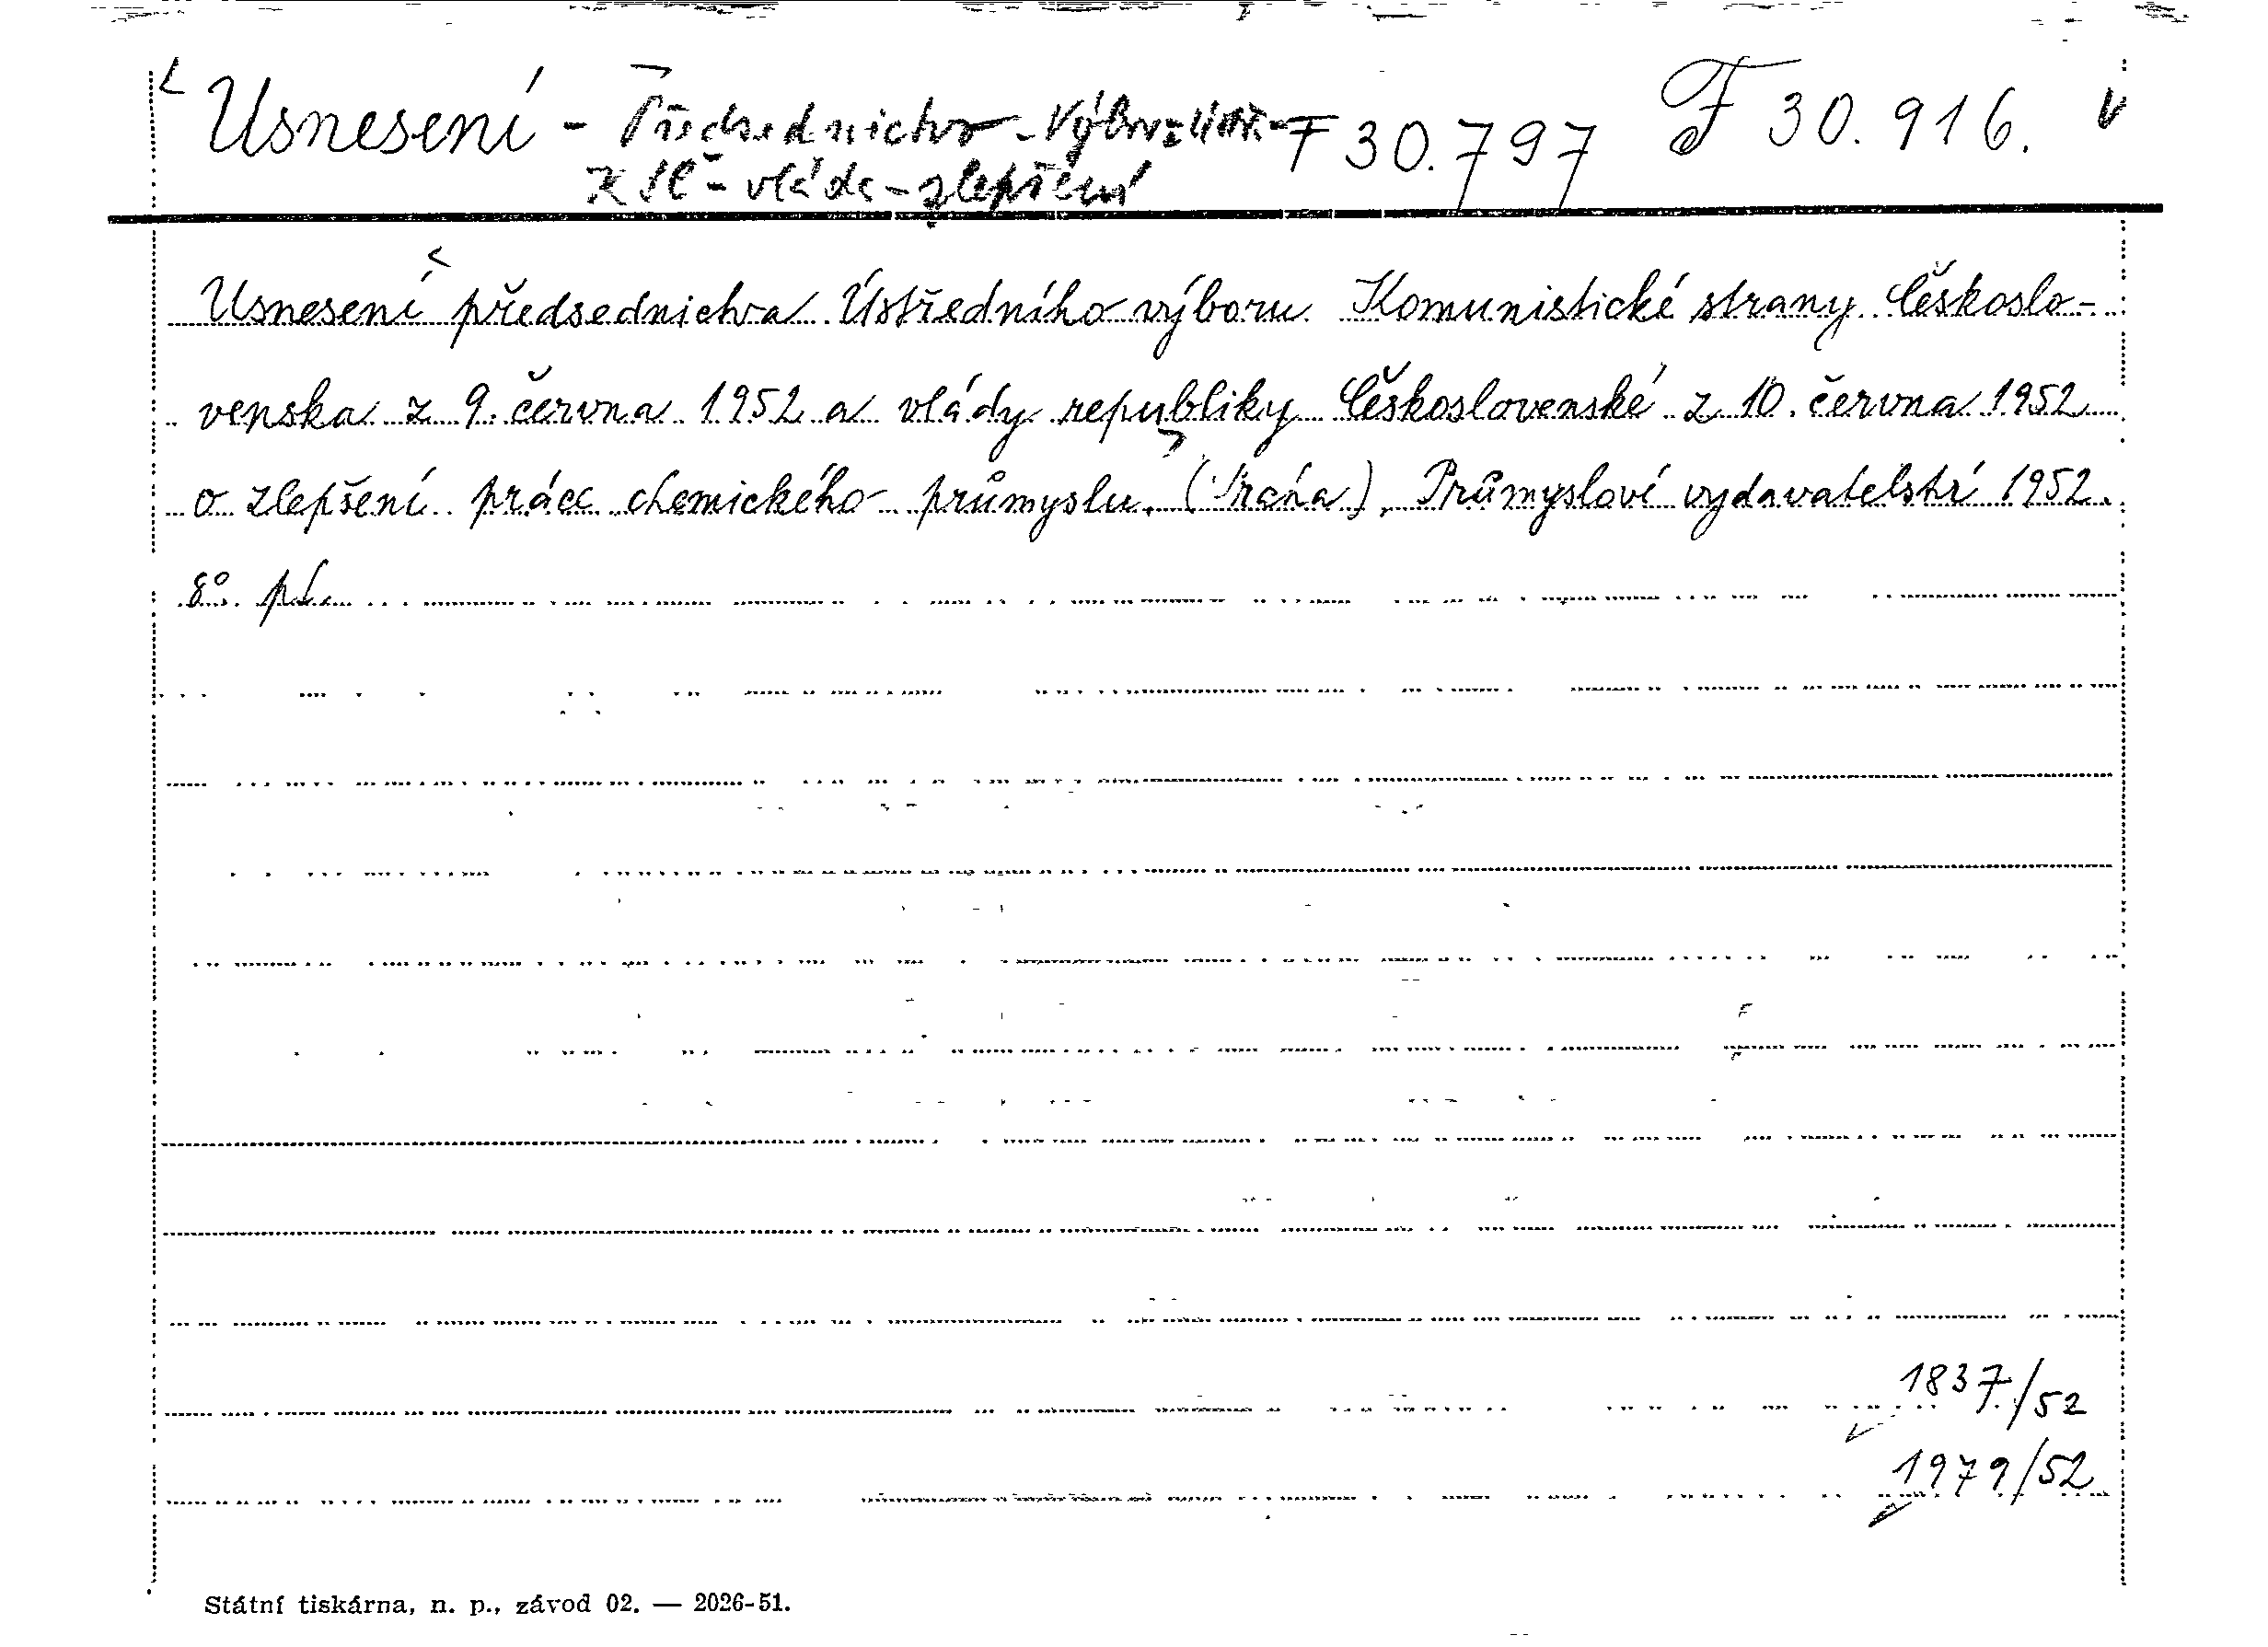 Usnesení - Předsednictvo - Výbor ústř. - F 30.797 F 30.916.
KSČ - vláda - zlepšení
Usnesení předsednictva Ústředního výboru Komunistické strany Českoslo-
venska z 9. června 1952 a vlády republiky Československé z 10. června 1952
o zlepšení práce chemického průmyslu. (Praha), Průmyslové vydavatelství 1952.
8°. pl.
1837/52
1979/52
Státní tiskárna, n. p., závod 02. — 2026-51.